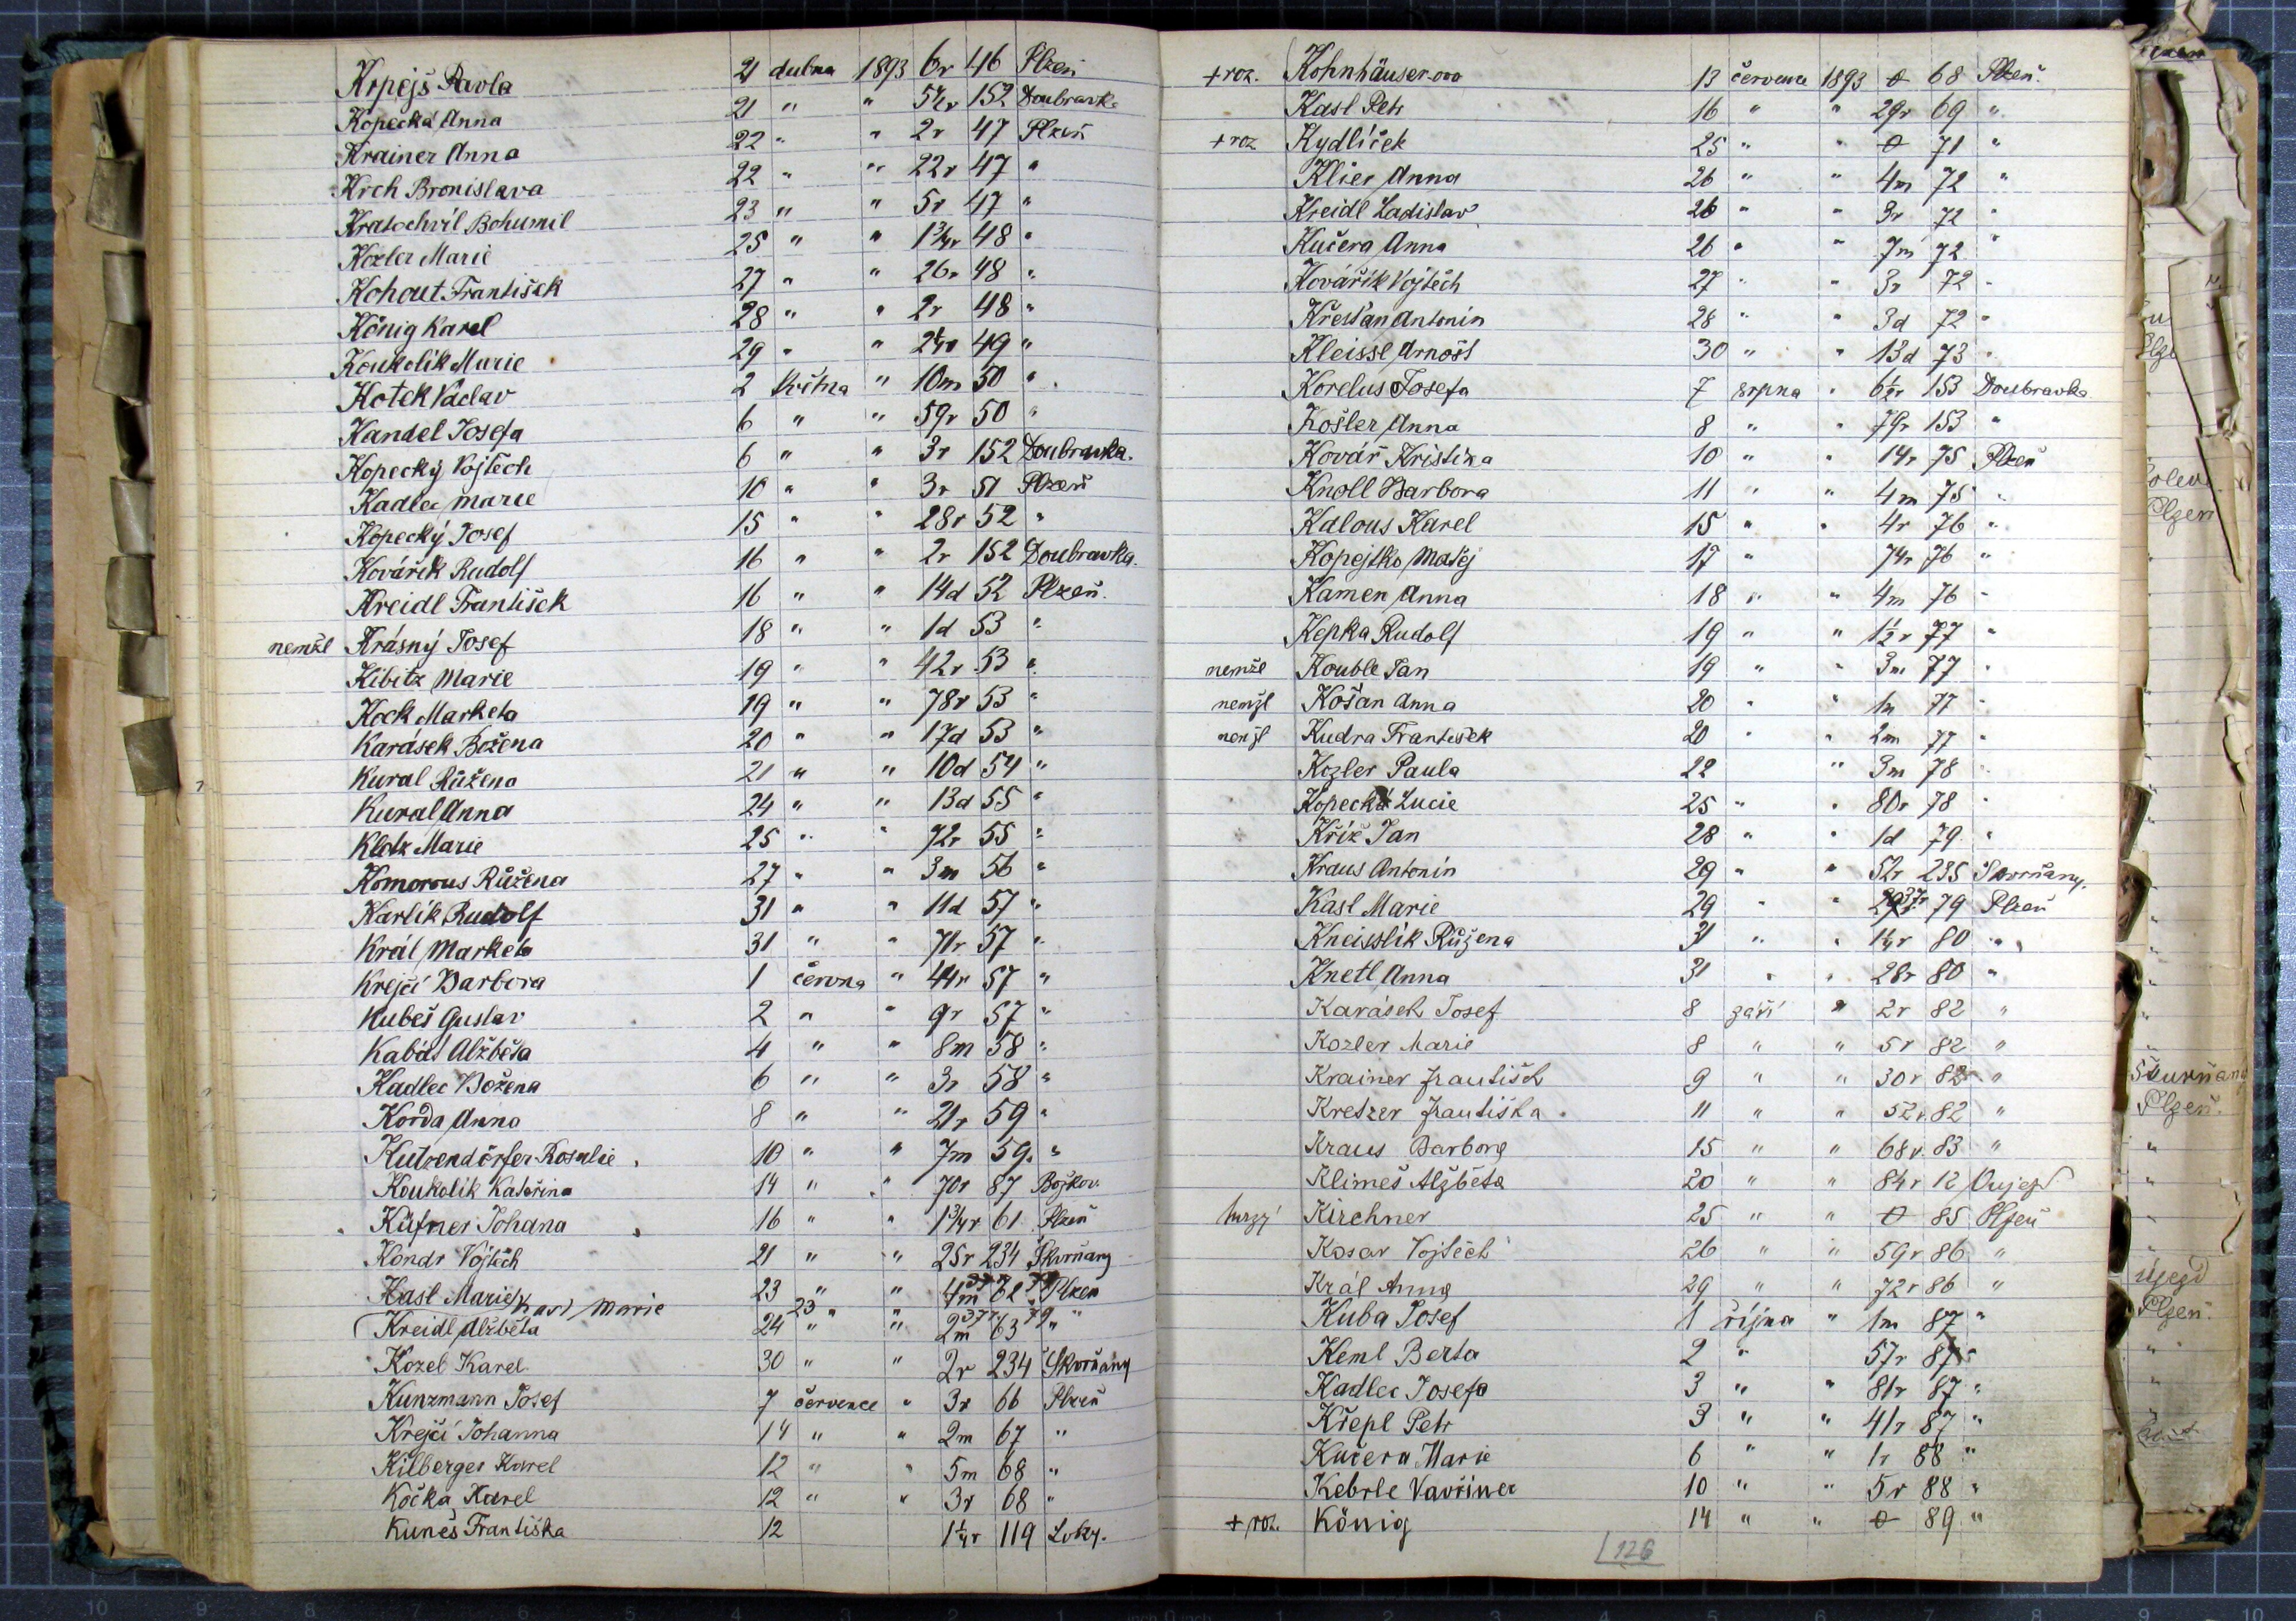 Krpejš Pavla 21 dubna 1893 6r 46 Plzeň
Kopecká Anna 21 " " 5½r 152 Doubravka
Krainer Anna 22 " " 2r 47 Plzeň
Krch Bronislava 22 " " 22r 47 "
Kratochvíl Bohumil 23 " " 5r 47 "
Kozler Marie 25 " " 1¾r 48 "
Kohout František 27 " " 26r 48 "
König Karel 28 " " 2r 48 "
Koukolík Marie 29 " " 2¼r 49 "
Kotek Václav 2 května " 10m 50 "
Kandel Josefa 6 " " 59r 50 "
Kopecký Vojtěch 6 " " 3r 152 Doubravka.
Kadlec Marie 10 " " 3r 51 Plzeň
Kopecký Josef 15 " " 28r 52 "
Kovářík Rudolf 16 " " 2r 152 Doubravka.
Kreidl František 16 " " 14d 52 Plzeň.
nemžl Krásný Josef 18 " " 1d 53 "
Kibitz Marie 19 " " 42r 53 "
Kock Marketa 19 " " 78r 53 "
Karásek Božena 20 " " 17d 53 "
Kural Růžena 21 " " 10d 54 "
Kural Anna 24 " " 13d 55 "
Klotz Marie 25 " " 72r 55 "
Komorous Růžena 27 " " 3m 56 "
Karlík Rudolf 31 " " 11d 57 "
Král Marketa 31 " " 71r 57 "
Krejčí Barbora 1 června " 44r 57 "
Kubeš Gustav 2 " " 9r 57 "
Kabát Alžběta 4 " " 8m 58 "
Kadlec Božena 6 " " 3r 58 "
Korda Anna 8 " " 21r 59 "
Kutzendörfer Rosalie 10 " " 7m 59 "
Koukolík Kateřina 14 " " 70r 87 Božkov.
Küfner Johana 16 " " 1¾r 61 Plzeň
Kondr Vojtěch 21 " " 25r 234 Skvrňany
Kasl Marie 23 " " 4m 62 Plzeň
Kasl Marie 23 " " 37r 79 "
Kreidl Alžběta 24 " " 2m 63 "
Kozel Karel 30 " " 2r 234 Skvrňany
Kunzmann Josef 7 července " 3r 66 Plzeň
Krejčí Johanna 14 " " 2m 67 "
Kilberger Karel 12 " " 5m 68 "
Kočka Karel 12 " " 3r 68 "
Kuneš Františka 12 1¼r 119 Lobzy.
+ roz. Kohnhäuser-ova 13 července 1893 0 68 Plzeň.
Kasl Petr 16 " " 29r 69 "
+ roz Kydlíček 25 " " 0 71 "
Klier Anna 26 " " 4m 72 "
Kreidl Ladislav 26 " " 3r 72 "
Kučera Anna 26 " " 7m 72 "
Kovářík Vojtěch 27 " " 3r 72 "
Křesťan Antonín 28 " " 3d 72 "
Kleissl Arnošt 30 " " 13d 73 "
Korelus Josefa 7 srpna " 6½r 153 Doubravka
Košler Anna 8 " " 79r 153 "
Kovář Kristina 10 " " 14r 75 Plzeň
Knoll Barbora 11 " " 4m 75 "
Kalous Karel 15 " " 4r 76 "
Kopejtko Matěj 17 " 74r 76 "
Kamen Anna 18 " " 4m 76 "
Kepka Rudolf 19 " " 1½r 77 "
nemžl Kouble Jan 19 " " 3m 77 "
nemžl Košan Anna 20 " " 1m 77 "
nemžl Kudra František 20 " " 2m 77 "
Kozler Paula 22 " 3m 78 "
Kopecká Lucie 25 " " 80r 78 "
Kříž Jan 28 " " 1d 79 "
Kraus Antonín 29 " " 52r 235 Skvrňany.
Kasl Marie 29 " " 37r 79 Plzeň
Kneisslík Růžena 31 " " 1¼r 80 "
Knetl Anna 31 " " 28r 80 "
Karásek Josef 8 září " 2r 82 "
Kozler Marie 8 " " 5r 82 "
Krainer František 9 " " 30r 82 "
Kretzer Františka 11 " " 52r 82 "
Kraus Barbora 15 " " 68r 83 "
Klimeš Alžběta 20 " " 84r 12 Oujezd
Kirchner 25 " " 0 85 Plzeň
Kosar Vojtěch 26 " " 59r 86 "
Král Anna 29 " " 72r 86 "
Kuba Josef 1 října " 1m 87 "
Keml Berta 2 " 57r 87 "
Kadlec Josefa 3 " " 81r 87 "
Křepl Petr 3 " " 41r 87 "
Kučera Marie 6 " " 1r 88 "
Kebrle Vavřinec 10 " " 5r 88 "
+ roz. König 14 " " 0 89 "
126
Plzeň
Plzeň.
Újezd
Plzeň.